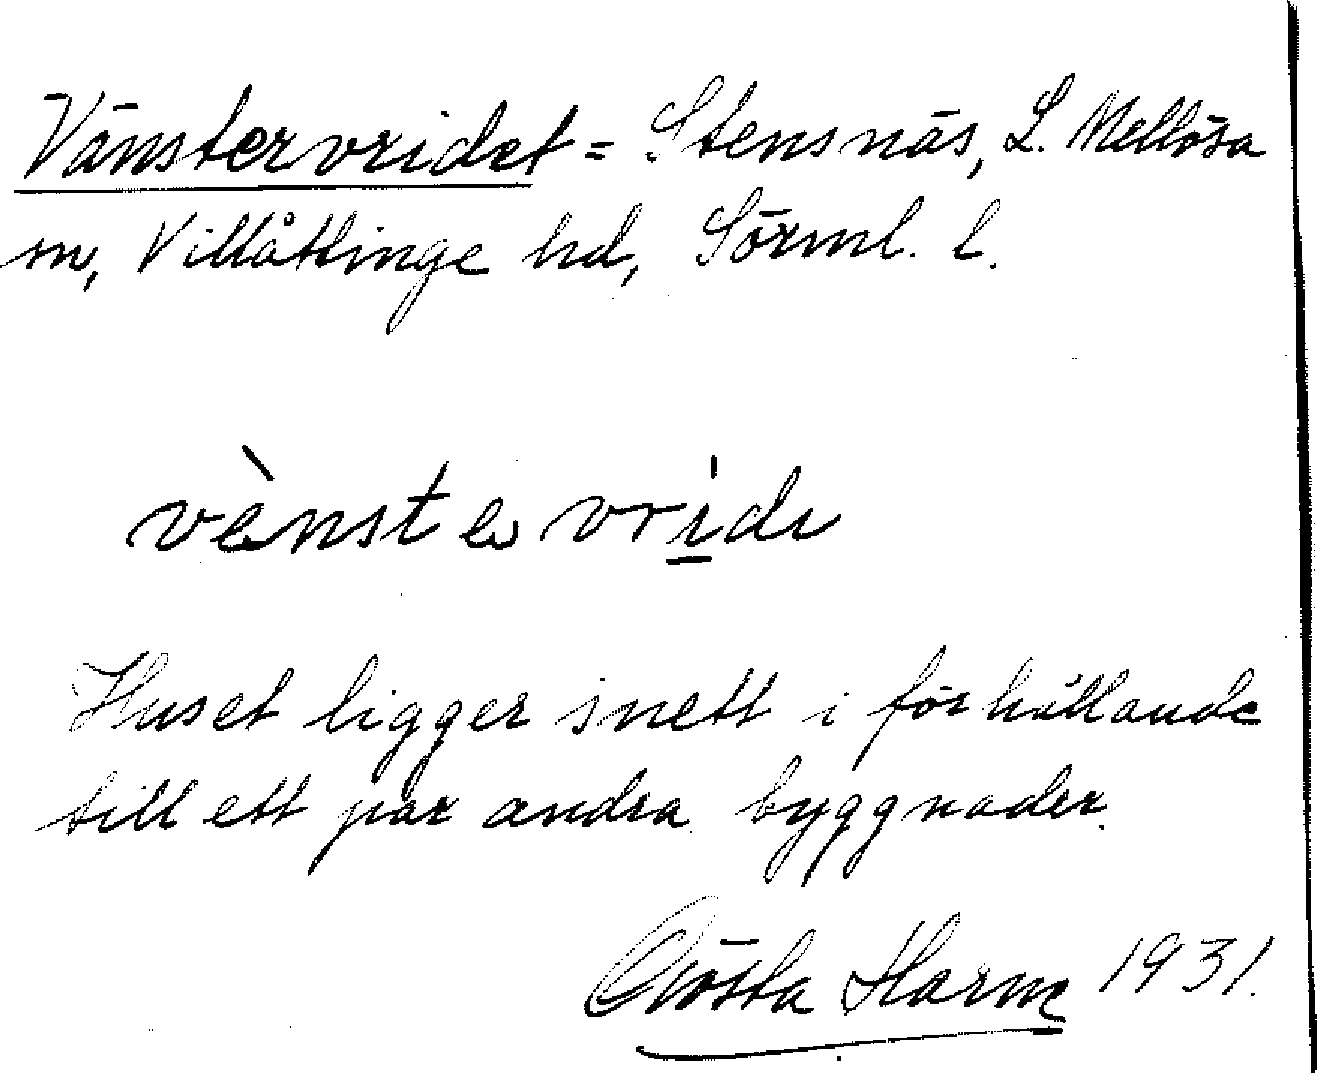 Vänstervridet = Stensnäs, L. Mellösa
sn, Villåttinge hd, Sörml. l.
vènste vridi
Huset ligger snett i förhållande
till ett par andra byggnader.
Gösta Harme 1931.